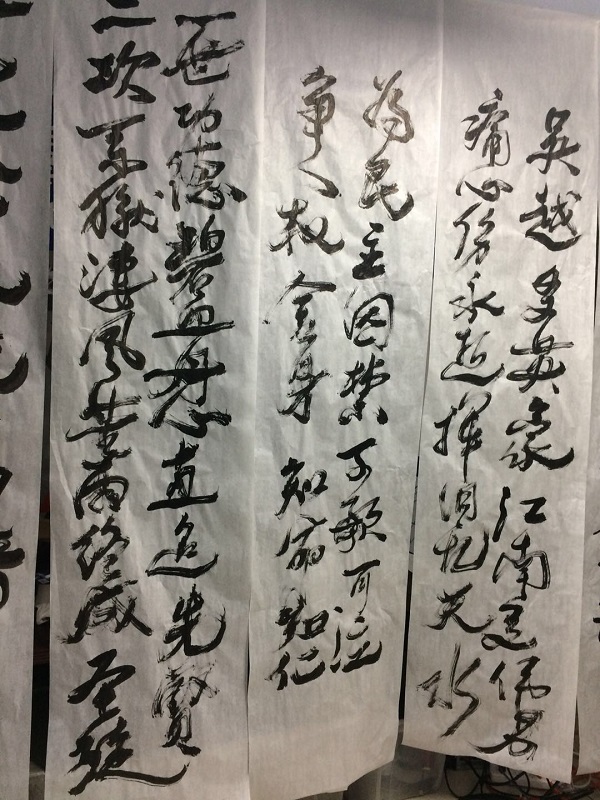 吴越多英豪江南男
痛心永逝挥泪忆天水
为民主囚禁可歌可泣
争人权舍身知知仁
一世功德碧血丹心直追先贤
二次系狱凄风苦雨终成圣